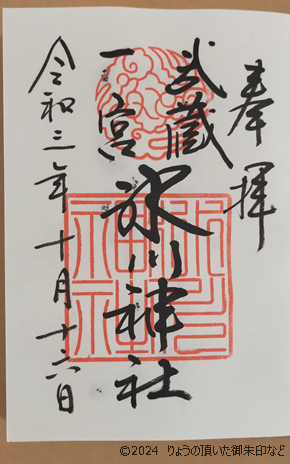 奉拝
武蔵
一宮
氷川神社
令和三年十月十六日
氷川神社
©2024 りょうの頂いた御朱印など